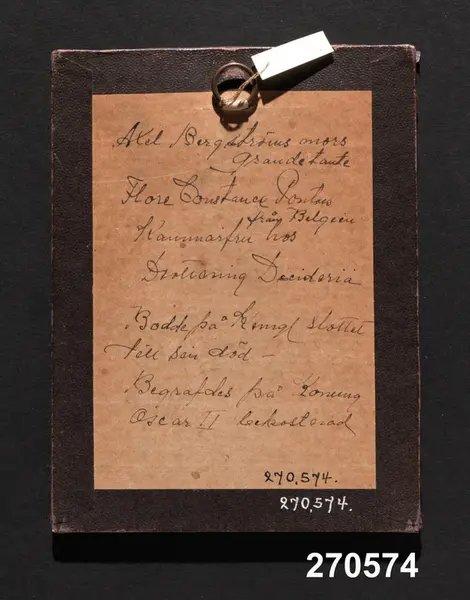 Axel Bergströms mors
Grandetante
Flore Constance Pontus
från Belgien
Kammarfru hos
Drottning Decideria
Bodde på Kungl slottet
till sin död –
Begrafdes på Konung
Oscar II bekostnad
270,574.
270,574.
270574